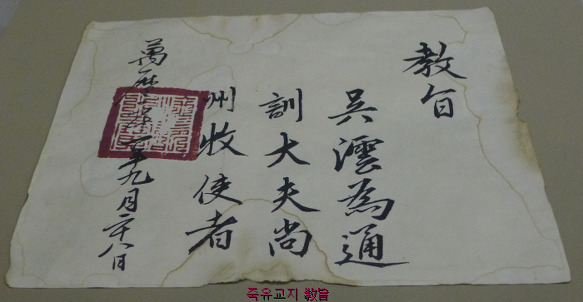 教旨
吳澐為通
訓大夫尚
州牧使者
萬曆 年九月二十八日
죽유교지 敎旨